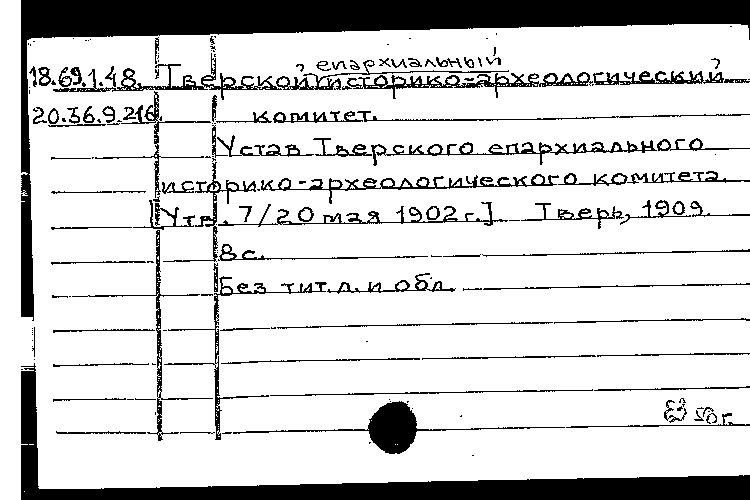 18.69.1.48. Тверской епархиальный историко-археологический
20.36.9.216. комитет.
Устав Тверского епархиального
историко-археологического комитета.
[Утв. 7/20 мая 1902 г.] Тверь, 1909.
8 с.
Без тит. л. и обл.